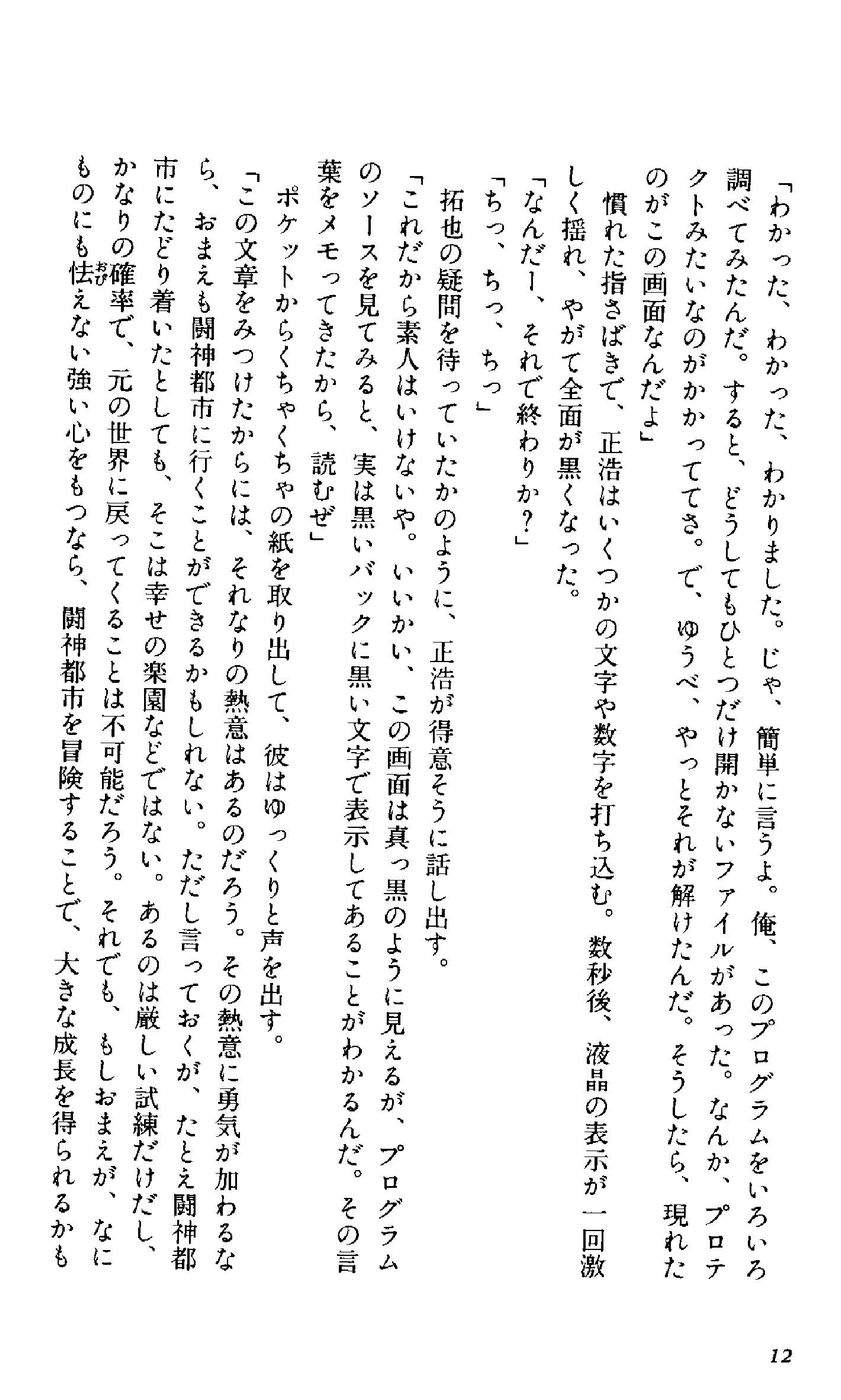 「わかった、わかった、わかりました。じゃ、簡単に言うよ。俺、このプログラムをいろいろ
調べてみたんだ。すると、どうしてもひとつだけ開かないファイルがあった。なんか、プロテ
クトみたいなのがかかっててさ。で、ゆうべ、やっとそれが解けたんだ。そうしたら、現れた
のがこの画面なんだよ」
慣れた指さばきで、正浩はいくつかの文字や数字を打ち込む。数秒後、液晶の表示が一回激
しく揺れ、やがて全面が黒くなった。
「なんだー、それで終わりか?」
「ちっ、ちっ、ちっ」
拓也の疑問を待っていたかのように、正浩が得意そうに話し出す。
「これだから素人はいけないや。いいかい、この画面は真っ黒のように見えるが、プログラム
のソースを見てみると、実は黒いバックに黒い文字で表示してあることがわかるんだ。その言
葉をメモってきたから、読むぜ」
ポケットからくちゃくちゃの紙を取り出して、彼はゆっくりと声を出す。
「この文章をみつけたからには、それなりの熱意はあるのだろう。その熱意に勇気が加わるな
ら、おまえも闘神都市に行くことができるかもしれない。ただし言っておくが、たとえ闘神都
市にたどり着いたとしても、そこは幸せの楽園などではない。あるのは厳しい試練だけだし、
かなりの確率で、元の世界に戻ってくることは不可能だろう。それでも、もしおまえが、なに
ものにも怯えない強い心をもつなら、闘神都市を冒険することで、大きな成長を得られるかも
おび
12